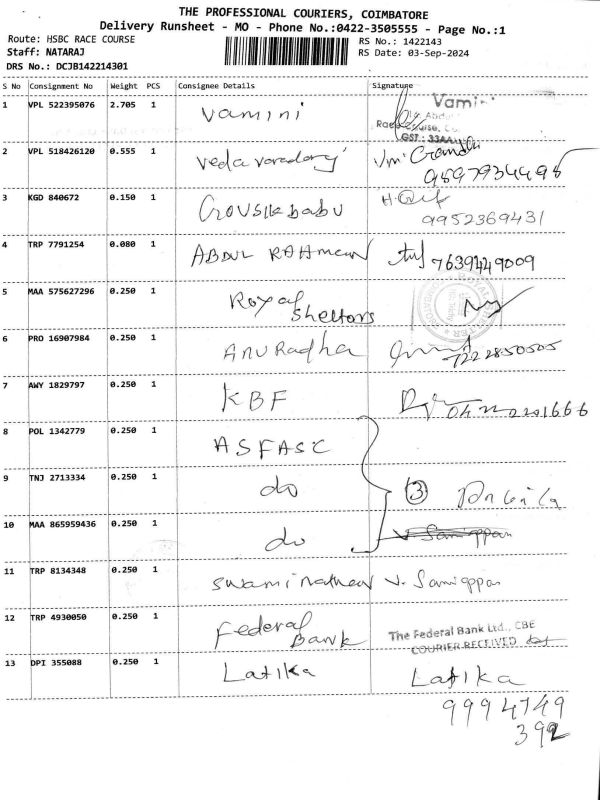 THE PROFESSIONAL COURIERS, COIMBATORE
Delivery Runsheet - MO - Phone No.:0422-3505555 - Page No.:1
Route: HSBC RACE COURSE
RS No.: 1422143
Staff: NATARAJ
RS Date: 03-Sep-2024
DRS No.: DCJB142214301
S No Consignment No Weight PCS Consignee Details Signature
1 VPL 522395076 2.705 1 Vamini Vamini
2 VPL 518426120 0.555 1 9597934498
3 KGD 840672 0.150 1 Gousik babu 9952369431
4 TRP 7791254 0.080 1 ABDUL RAHman 7639449009
5 MAA 575627296 0.250 1 Royal Shelters
6 PRO 16907984 0.250 1 Anuradha 7222850505
7 AWY 1829797 0.250 1 KBF
8 POL 1342779 0.250 1 ASFASC
9 TNJ 2713334 0.250 1 do 3
10 MAA 865959436 0.250 1 do V. Samiappan
11 TRP 8134348 0.250 1 Swaminathan V. Samiappan
12 TRP 4930050 0.250 1 Federal Bank The Federal Bank Ltd., CBE
COURIER RECEIVED
13 DPI 355088 0.250 1 Latika Latika
9994749
392